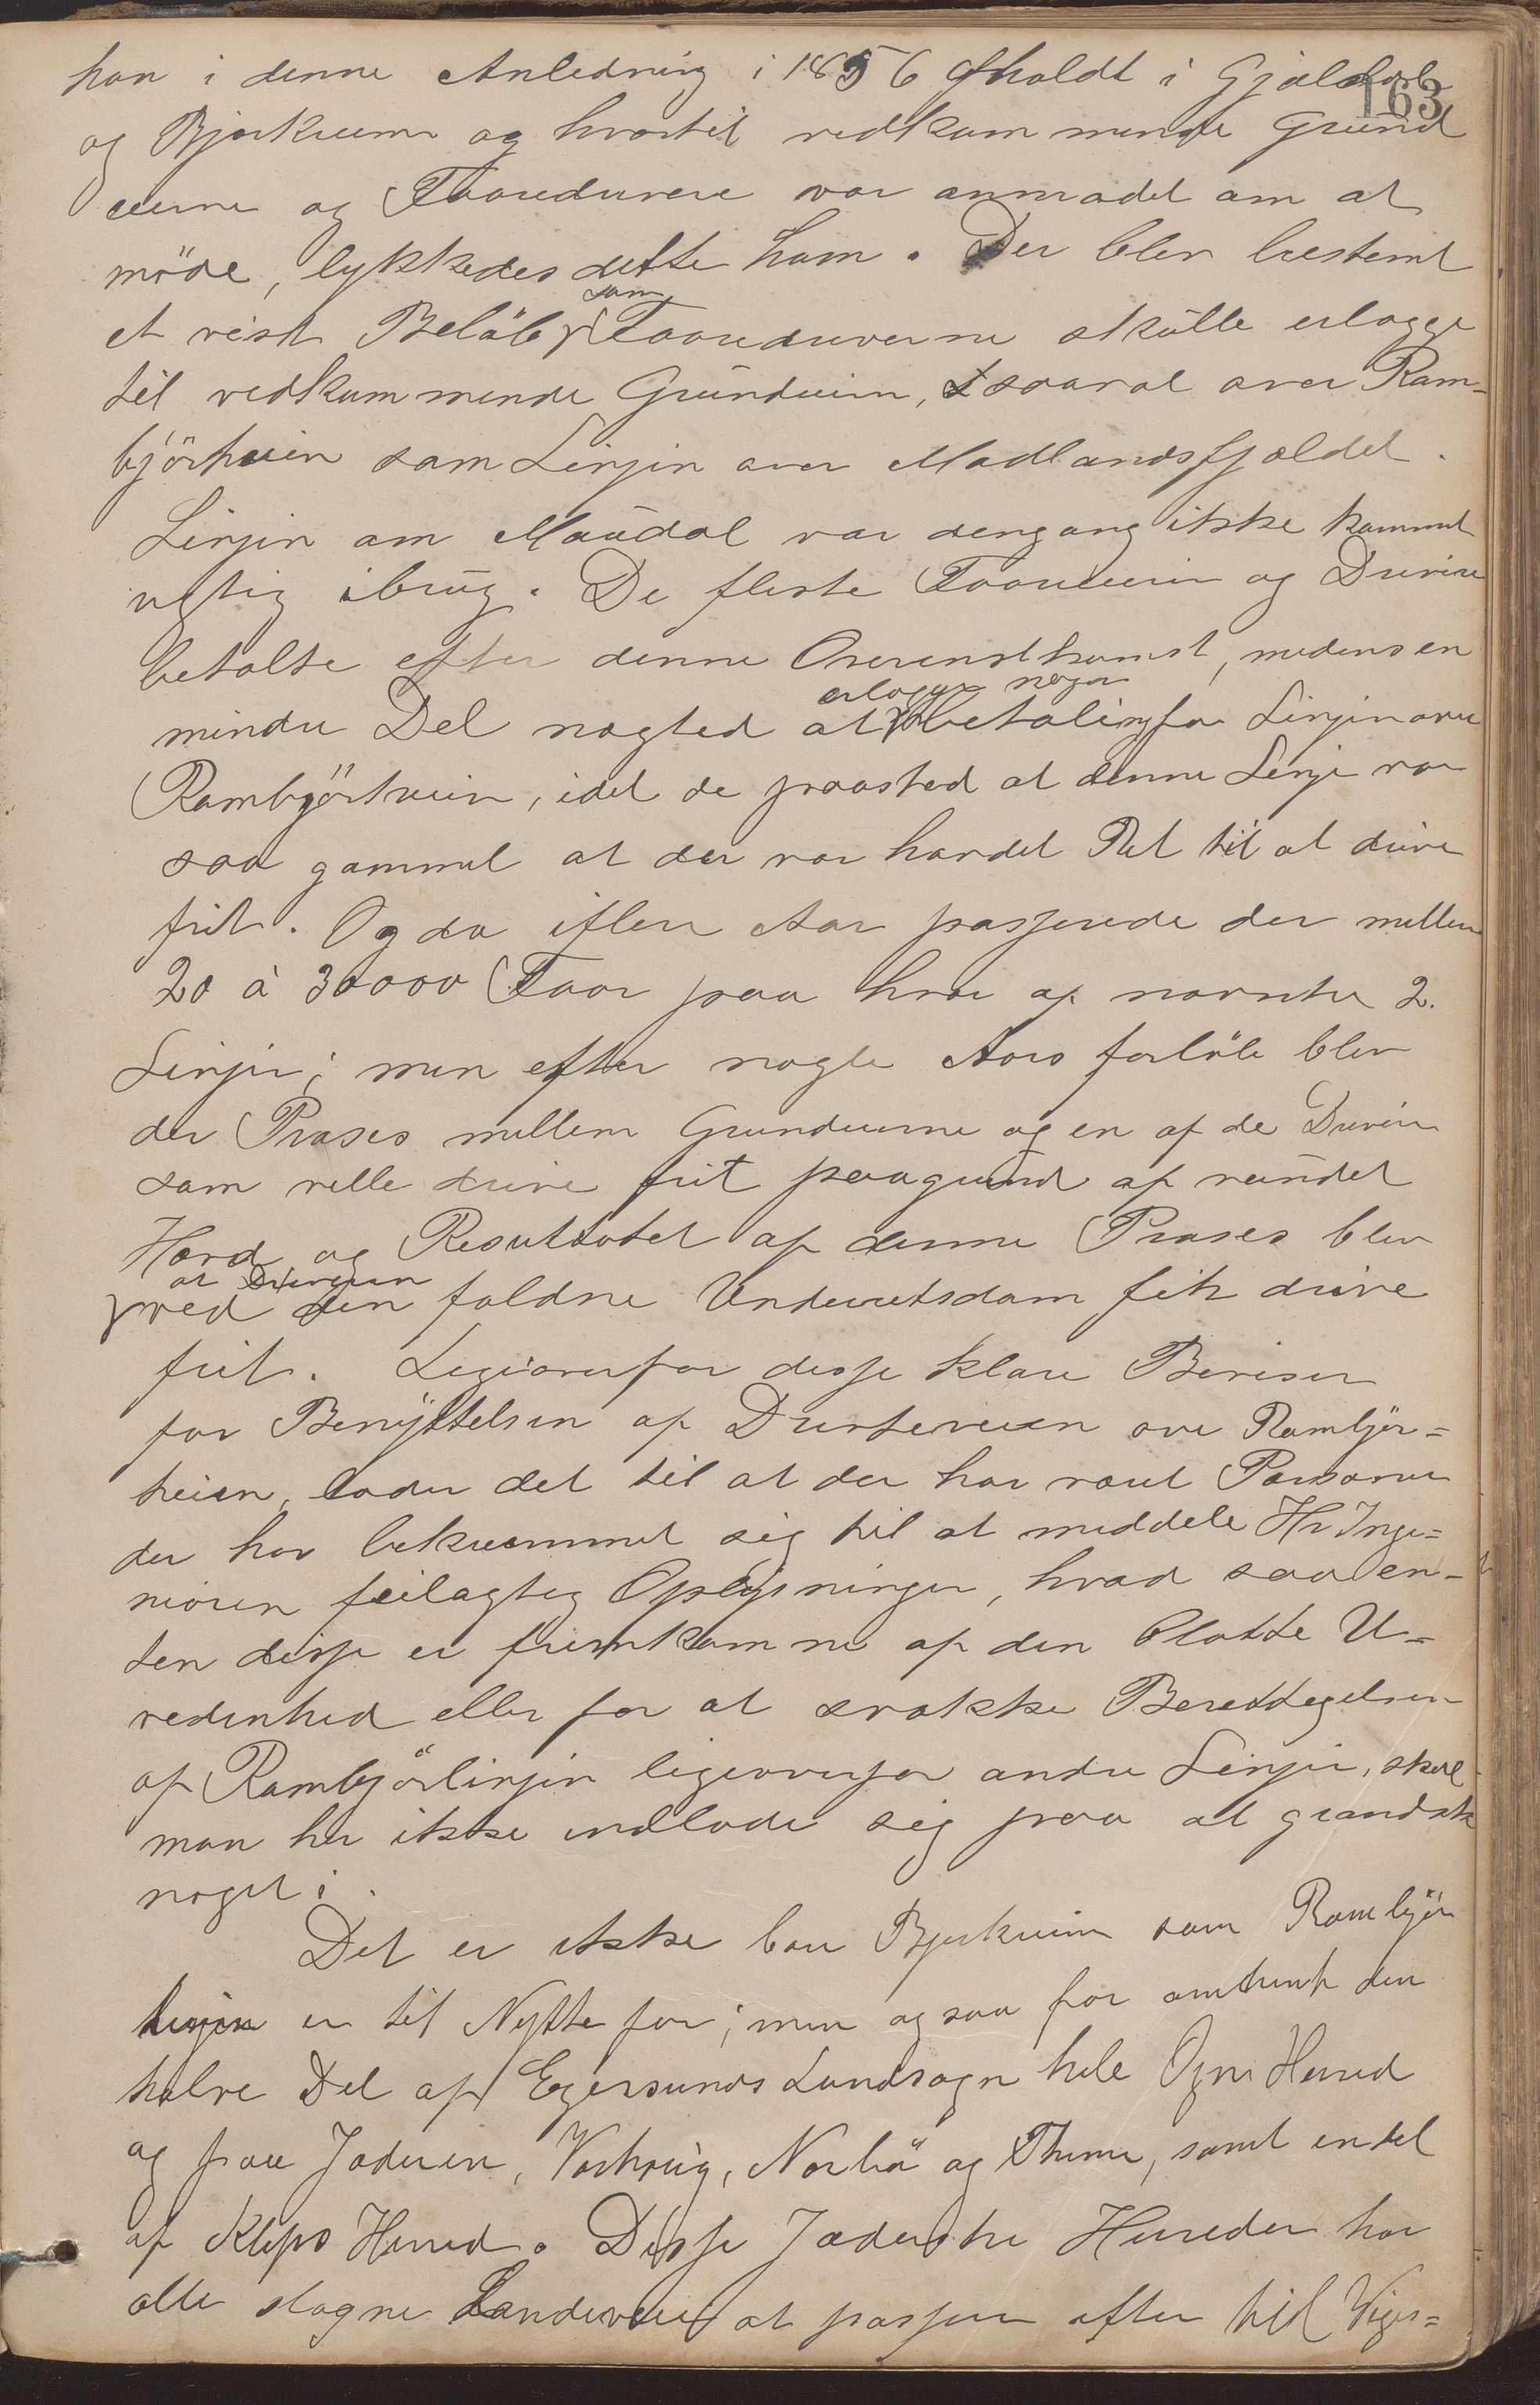 163
han i denne Anledning i 1856 afholdt i Gjæsdal
og Bjerkreim og hvortil vedkommende Grund
eierne og Faaredrivere var anmodet om at
möde, lykkedes dette ham. Der blev bestemt
et vist Belöb som Faaredriverne skulle erlægge
til vedkommende Grundeiere, saavel over Ram-
björheien som Linjen over Madlandsfjeldet.
Linjen om Maudal var dengang ikke kommet
rigtig ibrug. De fleste Faareeiere og Drivere
betalte efter denne Overenskomst, medens en
mindre Del nægted at erlægge nogen betaling for Linjen over
Rambjörheien, idet de paasted at denne Linje var
saa gammel at der var hævdet Ret til at drive
frit. Og da iflere Aar passerede der mellem
20 à 30000 Faar paa hver af nævnte 2.
Linjer; men efter nogle Aars forlöb blev
der Proses mellem Grundeierne og en af de Drivere
som vilde drive frit paagrund af vundet
Hævd og Resultatet af denne Proses blev
at Driveren
ved den faldne Underretsdom fik drive
frit. Ligeoverfor disse klare Beviser
for Benyttelsen af Drifteveien over Rambjör=
heien, lader det til at der har været Personer
der har bekvemmet sig til at meddele Hr Inge=
niøren feilagtig Oplysninger, hvad saa en-
ten disse er fremkomne af den blotte U=
videnhed eller for at svække Berettigelsen
af Rambjörlinjen ligeoverfor andre Linjer, skal
man her ikke indlade sig paa at grandske
noget i.
Det er ikke bare Bjerkreim som Rambjör
linjen er til Nytte for; men ogsaa for omtrent den
halve Del af Egersunds Landsogn hele Ogne Herred
og paa Jæderen, Varhoug, Narbö og Thime, samt endel
af Kleps Herred. Disse Jæderske Herreder har
alle slagne Landeveie at passere efter til Viges=